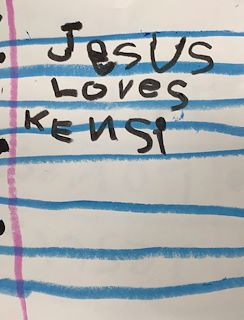 JesUS
Loves
KENSi